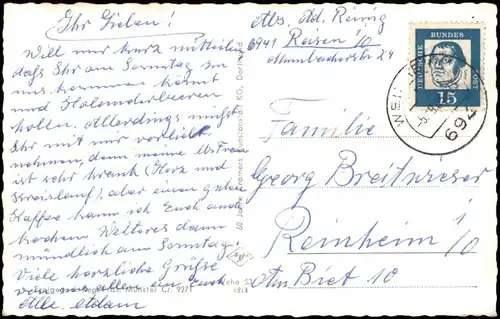 Ihr Lieben!
Will nur kurz mitteilen
daß Ihr am Sonntag zu
uns kommen könnt
und Holunderbeeren
holen. Allerdings müßt
Ihr mit mir vorlieb
nehmen, denn meine
ist sehr krank (Herz und
Kreislauf), aber einen guten
Kaffee kann ich Euch auch
kochen. Weiteres dann
mündlich am Sonntag.
Viele herzliche Grüße
von uns allen an Euch
Alle. Adam
Abs. Ad. Reinig
6941 Reisen i/O
Mumbacherstr 24
DEUTSCHE BUNDESPOST
15
694
Familie
Georg Breitwieser
Reinheim i/O
Am Biet 10
60 Jahre Cramers Kunstanstalt KG, Dortmund
Freigegeben Reg. Präs. Münster Cr. 927